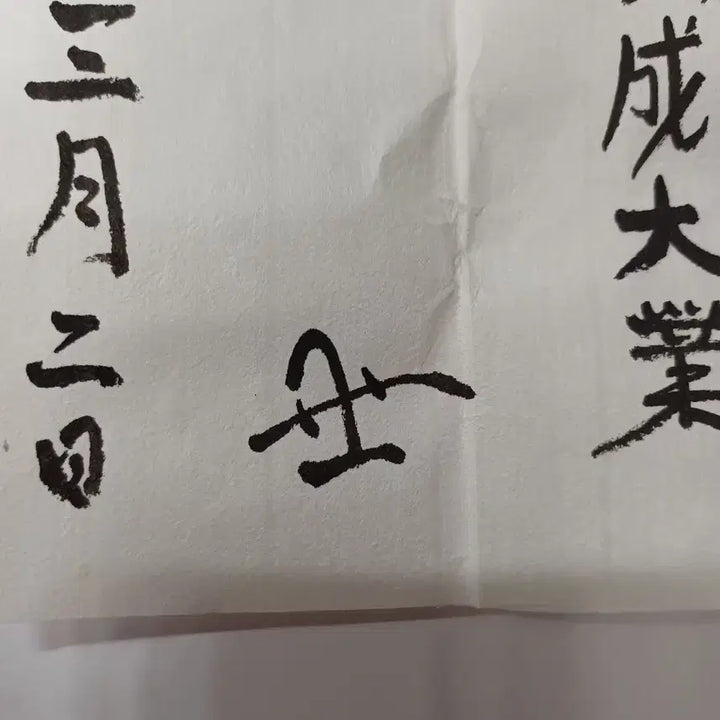 成大業
三月二日